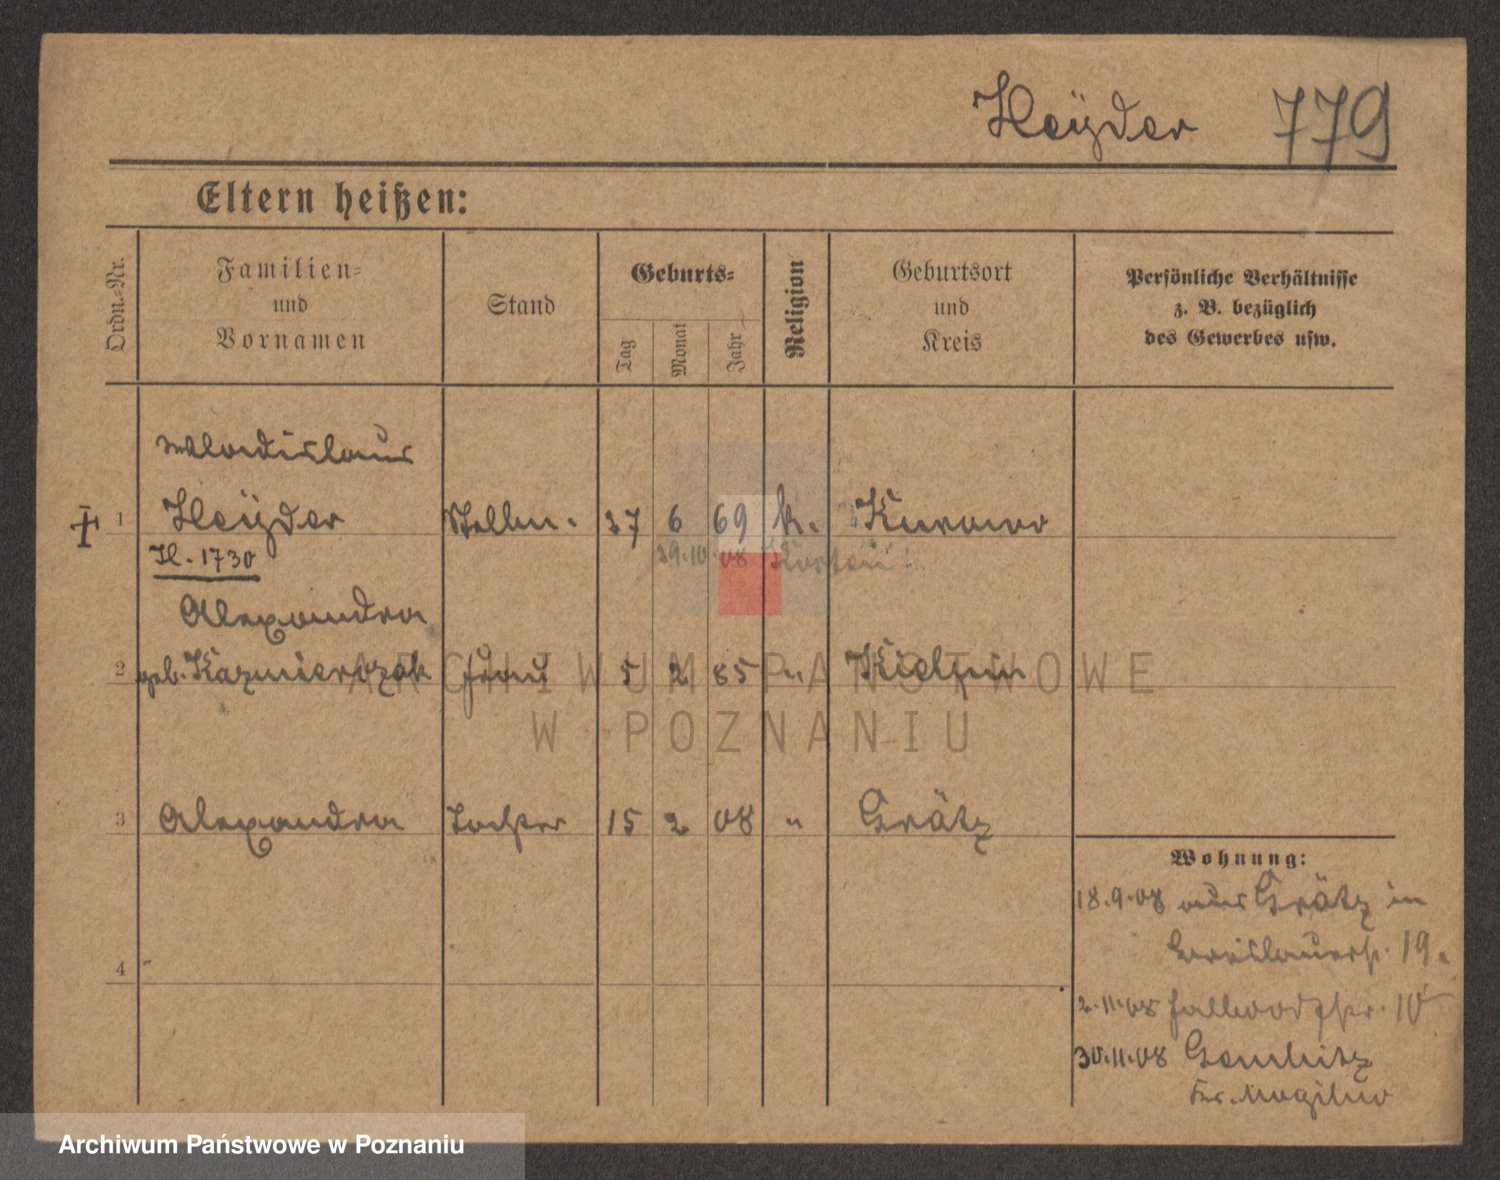 Heÿder 779
Eltern heißen:
Ordn.-Nr.
Familien-
und
Vornamen
Stand
Geburts-
Tag
Monat
Jahr
Religion
Geburtsort
und
Kreis
Persönliche Verhältnisse
z. B. bezüglich
des Gewerbes usw.
Wladislaus
1 Heÿder Stellm. 27 6 69 k. Kurowo
H. 1730
29.10.08 Kosten
Alexandra
2 geb. Kazmierczak Frau 5 2 85 "
3 Alexandra Tochter 15 2 08 " Grätz
4
Wohnung:
18.9.08 aus Grätz in
Breslauerstr. 19.
2.11.08 Halbdorfstr. 10
30.11.08 Gembitz
Kr. Mogilno
ARCHIWUM PAŃSTWOWE
W POZNANIU
Archiwum Państwowe w Poznaniu